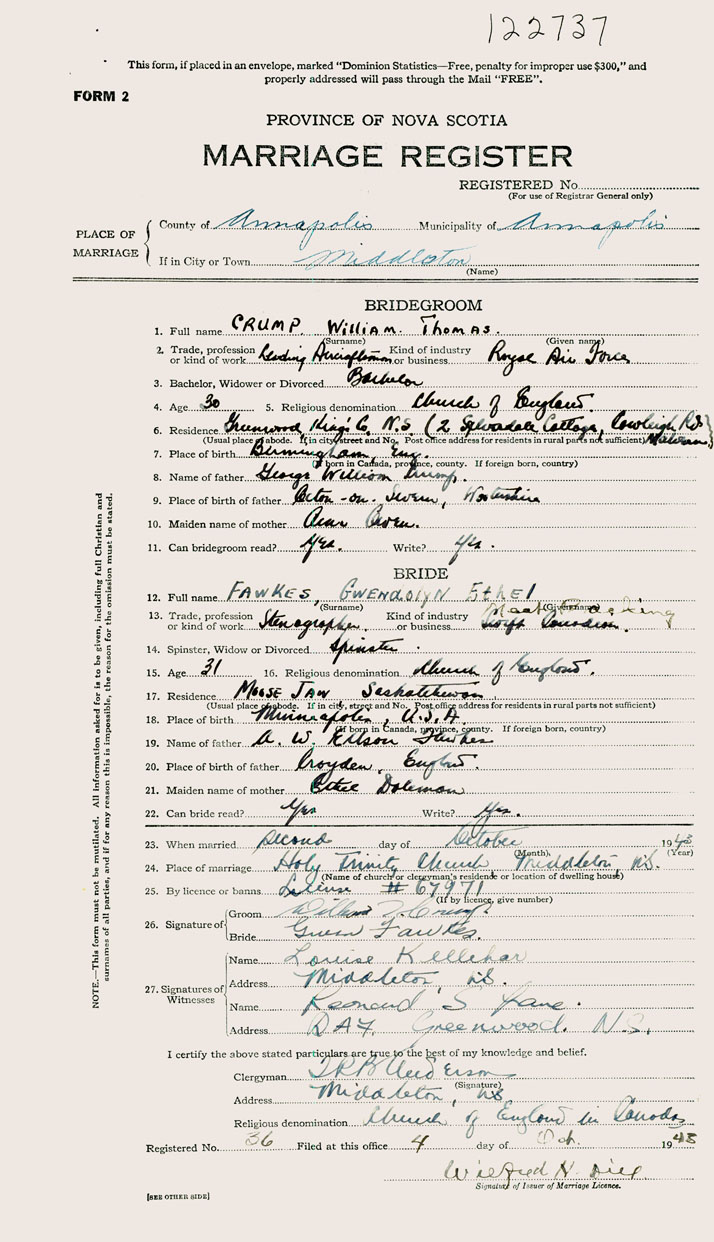 122737
This form, if placed in an envelope, marked "Dominion Statistics—Free, penalty for improper use $300," and
properly addressed will pass through the Mail "FREE".
FORM 2
PROVINCE OF NOVA SCOTIA
MARRIAGE REGISTER
REGISTERED No.
(For use of Registrar General only)
PLACE OF MARRIAGE
County of Annapolis Municipality of Annapolis
If in City or Town Middleton
(Name)
BRIDEGROOM
1. Full name CRUMP William Thomas.
(Surname) (Given name)
2. Trade, profession or kind of work Leading Aircraftsman Kind of industry or business. Royal Air Force
3. Bachelor, Widower or Divorced Bachelor
4. Age 30 5. Religious denomination Church of England.
6. Residence Greenwood, King's Co, N.S. (2 Cottage, Cowleigh Rd. Malvern)
(Usual place of abode. If in city, street and No. Post office address for residents in rural parts not sufficient)
7. Place of birth Birmingham, Eng.
(If born in Canada, province, county. If foreign born, country)
8. Name of father George William Crump.
9. Place of birth of father -on- Severn,
10. Maiden name of mother Owen.
11. Can bridegroom read? Yes. Write? Yes.
BRIDE
12. Full name FAWKES, GWENDOLYN EthEl
(Surname) (Given name)
13. Trade, profession or kind of work Stenographer. Kind of industry or business Meat Packing Swift Canadian.
14. Spinster, Widow or Divorced Spinster.
15. Age 31 16. Religious denomination Church of England.
17. Residence MOOSE JAW Saskatchewan
(Usual place of abode. If in city, street and No. Post office address for residents in rural parts not sufficient)
18. Place of birth Minneapolis, U.S.A.
(If born in Canada, province, county. If foreign born, country)
19. Name of father A. W. Fawkes
20. Place of birth of father Croydon, England.
21. Maiden name of mother Doleman
22. Can bride read? Yes Write? Yes.
23. When married second day of October 1943
(Month) (Year)
24. Place of marriage Holy Trinity Church Middleton, N.S.
(Name of church or clergyman's residence or location of dwelling house)
25. By licence or banns License # 67971
(If by licence, give number)
26. Signature of
Groom William T. Crump.
Bride Gwen Fawkes.
27. Signatures of Witnesses
Name Louise Kellehar
Address Middleton, N.S.
Name S.
Address Greenwood. N.S.
I certify the above stated particulars are true to the best of my knowledge and belief.
Clergyman Anderson
(Signature)
Address Middleton, NS
Religious denomination Church of England in Canada
Registered No. 36 Filed at this office 4 day of Oct. 1943
Wilfred H.
Signature of Issuer of Marriage Licence.
[SEE OTHER SIDE]
NOTE.—This form must not be mutilated. All information asked for is to be given, including full Christian and
surnames of all parties, and if for any reason this is impossible, the reason for the omission must be stated.